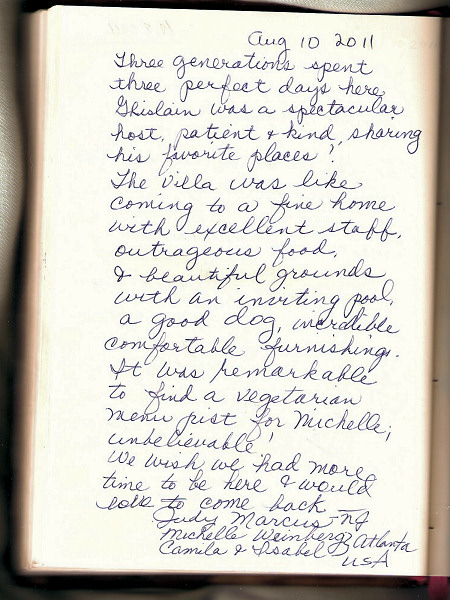 Aug 10 2011
Three generations spent
three perfect days here
Ghislain was a spectacular
host, patient & kind, sharing
his favorite places!
The Villa was like
coming to a fine home
with excellent staff,
outrageous food,
& beautiful grounds
with an inviting pool,
a good dog, incredible
comfortable furnishings.
It was remarkable
to find a vegetarian
menu just for Michelle;
unbelievable!
We wish we had more
time to be here & would
love to come back —
Judy Marcus - NJ
Michelle Weinberg } Atlanta
Camila & Isabel
USA